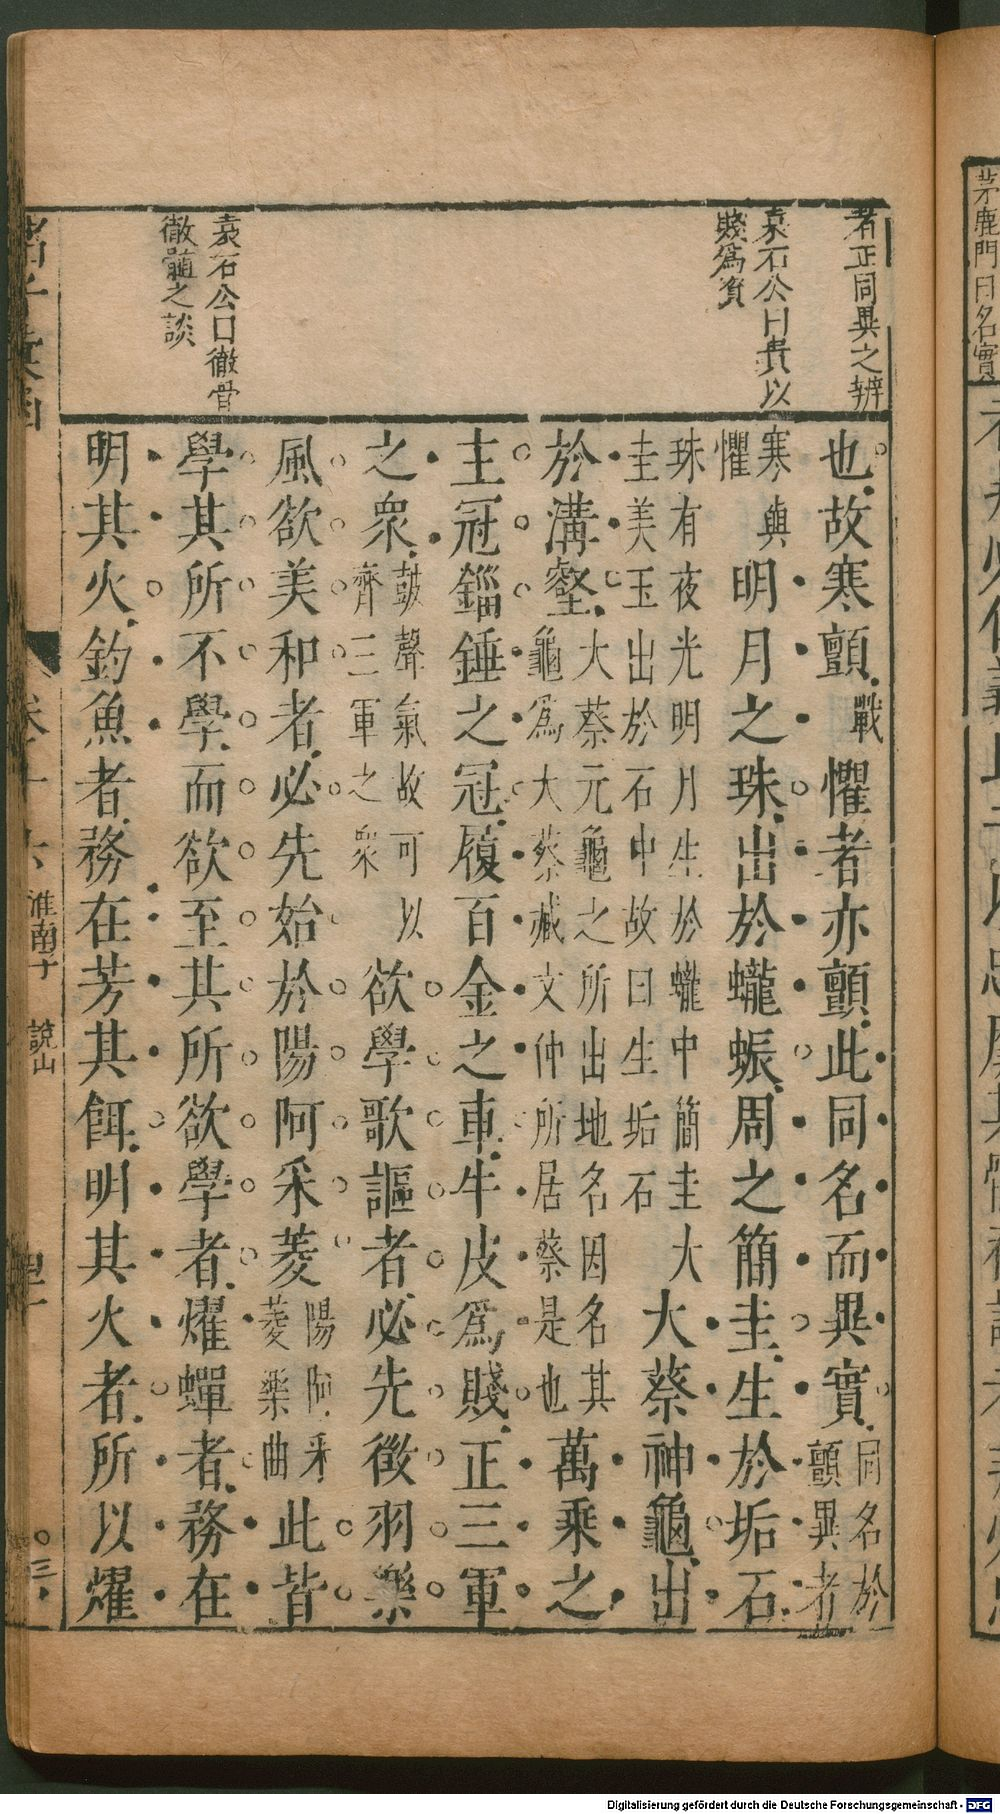 茅鹿門曰名實
者正同異之辨
袁石公曰貴以
賤爲資
袁石公曰徹骨
徹髓之談
也故寒顫戰懼者亦顫此同名而異實同名於
顫異者
寒與
懼明月之珠出於蠬蜄周之簡圭生於垢石
珠有夜光明月生於蠬中簡圭大
圭美玉出於石中故曰生垢石大蔡神龜出
於溝壑大蔡元龜之所出地名因名其
龜爲大蔡臧文仲所居蔡是也萬乘之
主冠錙錘之冠履百金之車牛皮爲賤正三軍
之衆鼓聲氣故可以
齊三軍之衆欲學歌謳者必先徵羽樂
風欲美和者必先始於陽阿采菱陽阿采
菱樂曲此皆
學其所不學而欲至其所欲學者燿蟬者務在
明其火釣魚者務在芳其餌明其火者所以燿
淮南子 說山
Digitalisierung gefördert durch die Deutsche Forschungsgemeinschaft - DFG